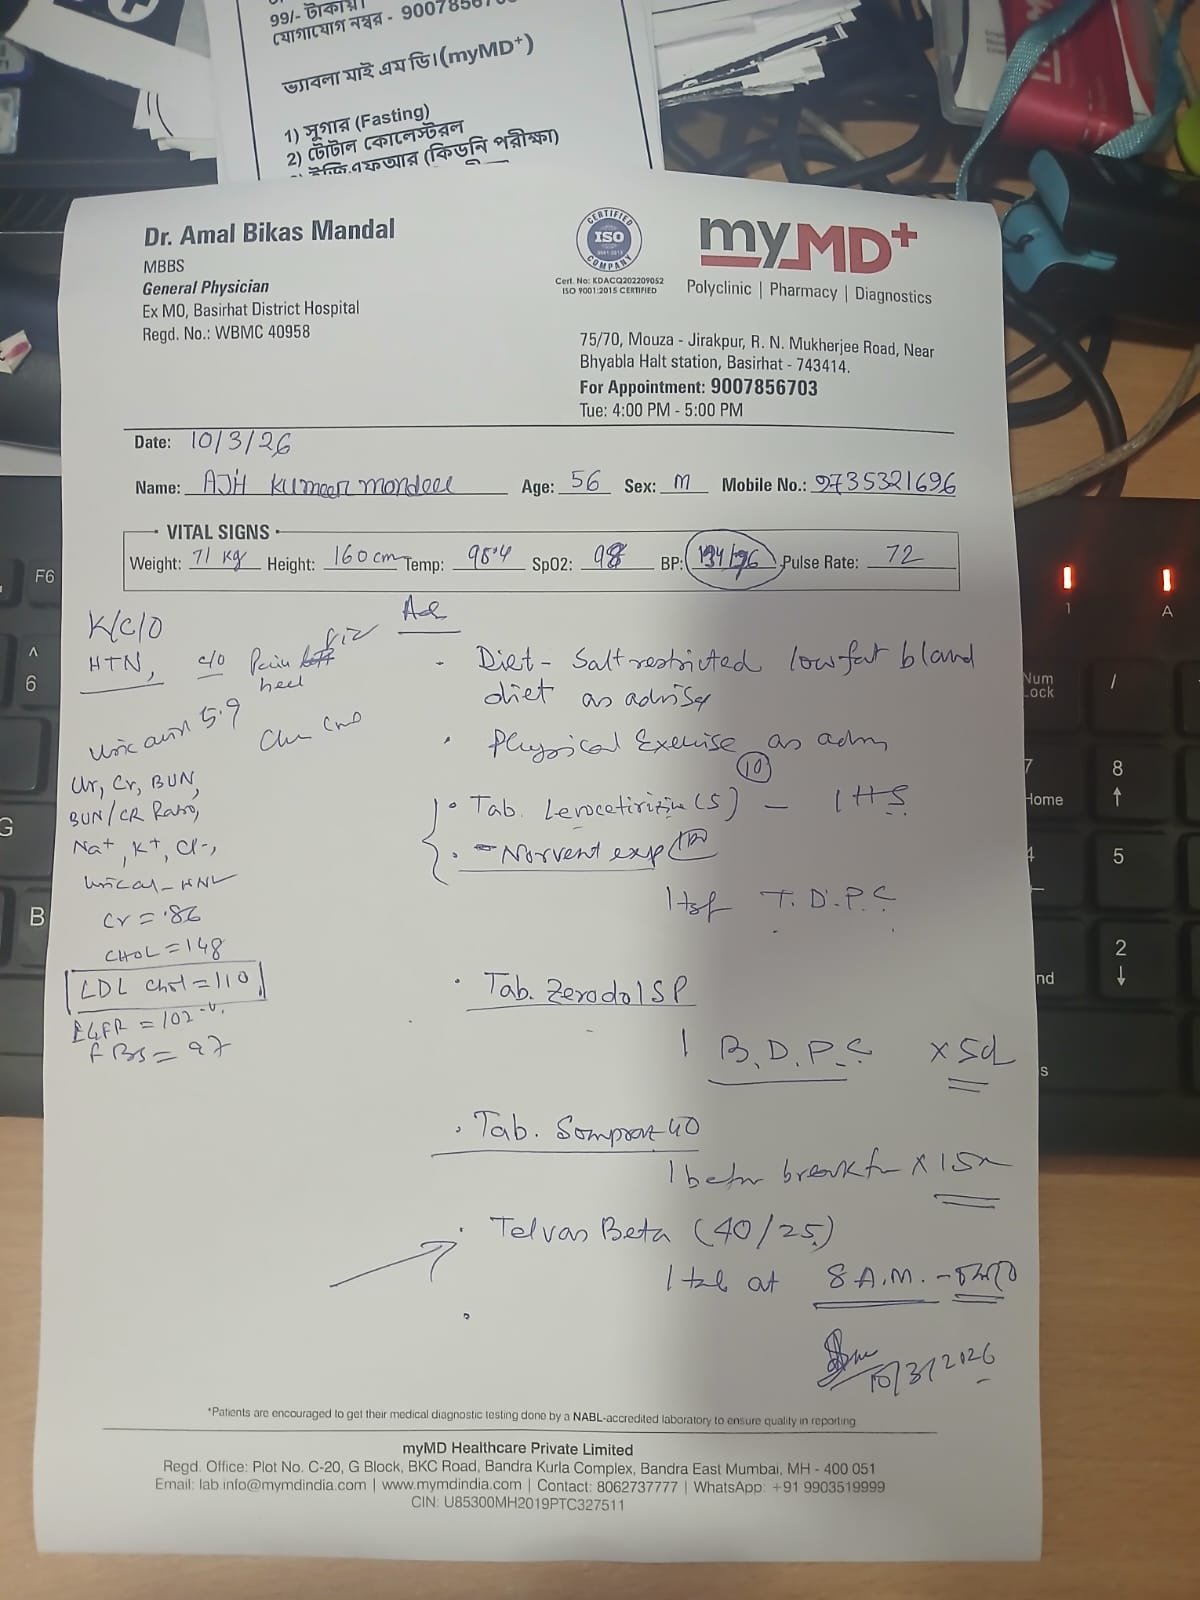 99/- টাকায়।
যোগাযোগ নম্বর - 9007856703
ভ্যাবলা মাই এম ডি।(myMD+)
1) সুগার (Fasting)
2) টোটাল কোলেস্টরল
ইজিএফআর (কিডনি পরীক্ষা)
Dr. Amal Bikas Mandal
MBBS
General Physician
Ex MO, Basirhat District Hospital
Regd. No.: WBMC 40958
CERTIFIED
ISO
9001:2015
COMPANY
Cert. No: KDACQ202209052
ISO 9001:2015 CERTIFIED
myMD+
Polyclinic | Pharmacy | Diagnostics
75/70, Mouza - Jirakpur, R. N. Mukherjee Road, Near
Bhyabla Halt station, Basirhat - 743414.
For Appointment: 9007856703
Tue: 4:00 PM - 5:00 PM
Date: 10/3/26
Name: Kumar Age: 56 Sex: M Mobile No.: 9735321696
VITAL SIGNS
Weight: 71 kg Height: 160 cm Temp: 98.4 SpO2: 98 BP: Pulse Rate: 72
K/C/O
HTN,
c/o Pain
heel
Uric acid 5.9
Ur, Cr, BUN,
BUN/CR Ratio,
Na+, K+, Cl-,
Cr = .86
CHOL = 148
LDL chol = 110
EGFR = 102
FBS = 97
Diet - Salt restricted low fat bland
diet as
Physical Exercise as
10
Tab. Levocetirizine (5) - 1 HS
1 tsf T.D.P.C
Tab. Zerodol SP
1 B.D.P.C x 5d
Tab. Sompraz 40
1 before x 15
Telvas Beta (40/25)
1 tab at 8 A.M. -
10/3/2026
*Patients are encouraged to get their medical diagnostic testing done by a NABL-accredited laboratory to ensure quality in reporting
myMD Healthcare Private Limited
Regd. Office: Plot No. C-20, G Block, BKC Road, Bandra Kurla Complex, Bandra East Mumbai, MH - 400 051
Email: lab.info@mymdindia.com | www.mymdindia.com | Contact: 8062737777 | WhatsApp: +91 9903519999
CIN: U85300MH2019PTC327511
F6
6
G
B
1
A
Num
Lock
/
7
Home
8
4
5
2